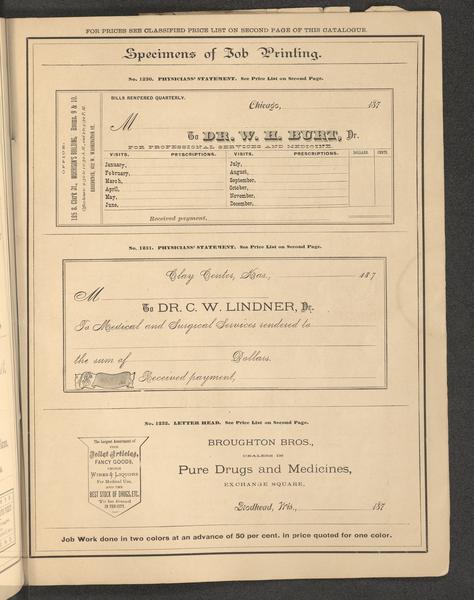 FOR PRICES SEE CLASSIFIED PRICE LIST ON SECOND PAGE OF THIS CATALOGUE.
Specimens of Job Printing.
No. 1230. PHYSICIANS' STATEMENT. See Price List on Second Page.
OFFICES:
185 S. Clark St., MORRISON'S BUILDING, Rooms, 9 & 10.
BILLS RENDERED QUARTERLY.
Chicago, 187
M
To DR. W. H. BURT, Dr.
FOR PROFESSIONAL SERVICES AND MEDICINE.
VISITS. PRESCRIPTIONS. VISITS. PRESCRIPTIONS. DOLLARS. CENTS.
January, July,
February, August,
March, September,
April, October,
May, November,
June, December,
Received payment,
No. 1231. PHYSICIANS' STATEMENT. See Price List on Second Page.
Clay Center, Kas., 187
M
To DR. C. W. LINDNER, Dr.
To Medical and Surgical Services rendered to
the sum of Dollars.
Received payment,
No. 1232. LETTER HEAD. See Price List on Second Page.
The Largest Assortment of
FINE
Toilet Articles,
FANCY GOODS,
CHOICE
WINES & LIQUORS
For Medical Use,
AND THE
BEST STOCK OF DRUGS, ETC.
To be found
IN THE CITY.
BROUGHTON BROS.,
DEALERS IN
Pure Drugs and Medicines,
EXCHANGE SQUARE,
Brodhead, Wis., 187
Job Work done in two colors at an advance of 50 per cent. in price quoted for one color.